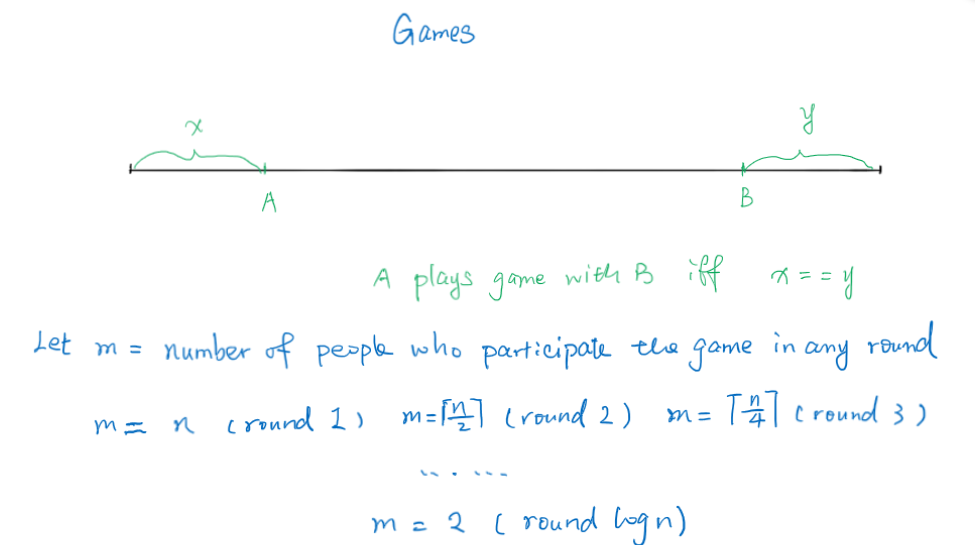 Games
x y
A B
A plays game with B iff x == y
Let m = number of people who participate the game in any round
m = n (round 1) m=⌈n/2⌉ (round 2) m= ⌈n/4⌉ (round 3)
.. . ...
m = 2 ( round logn)